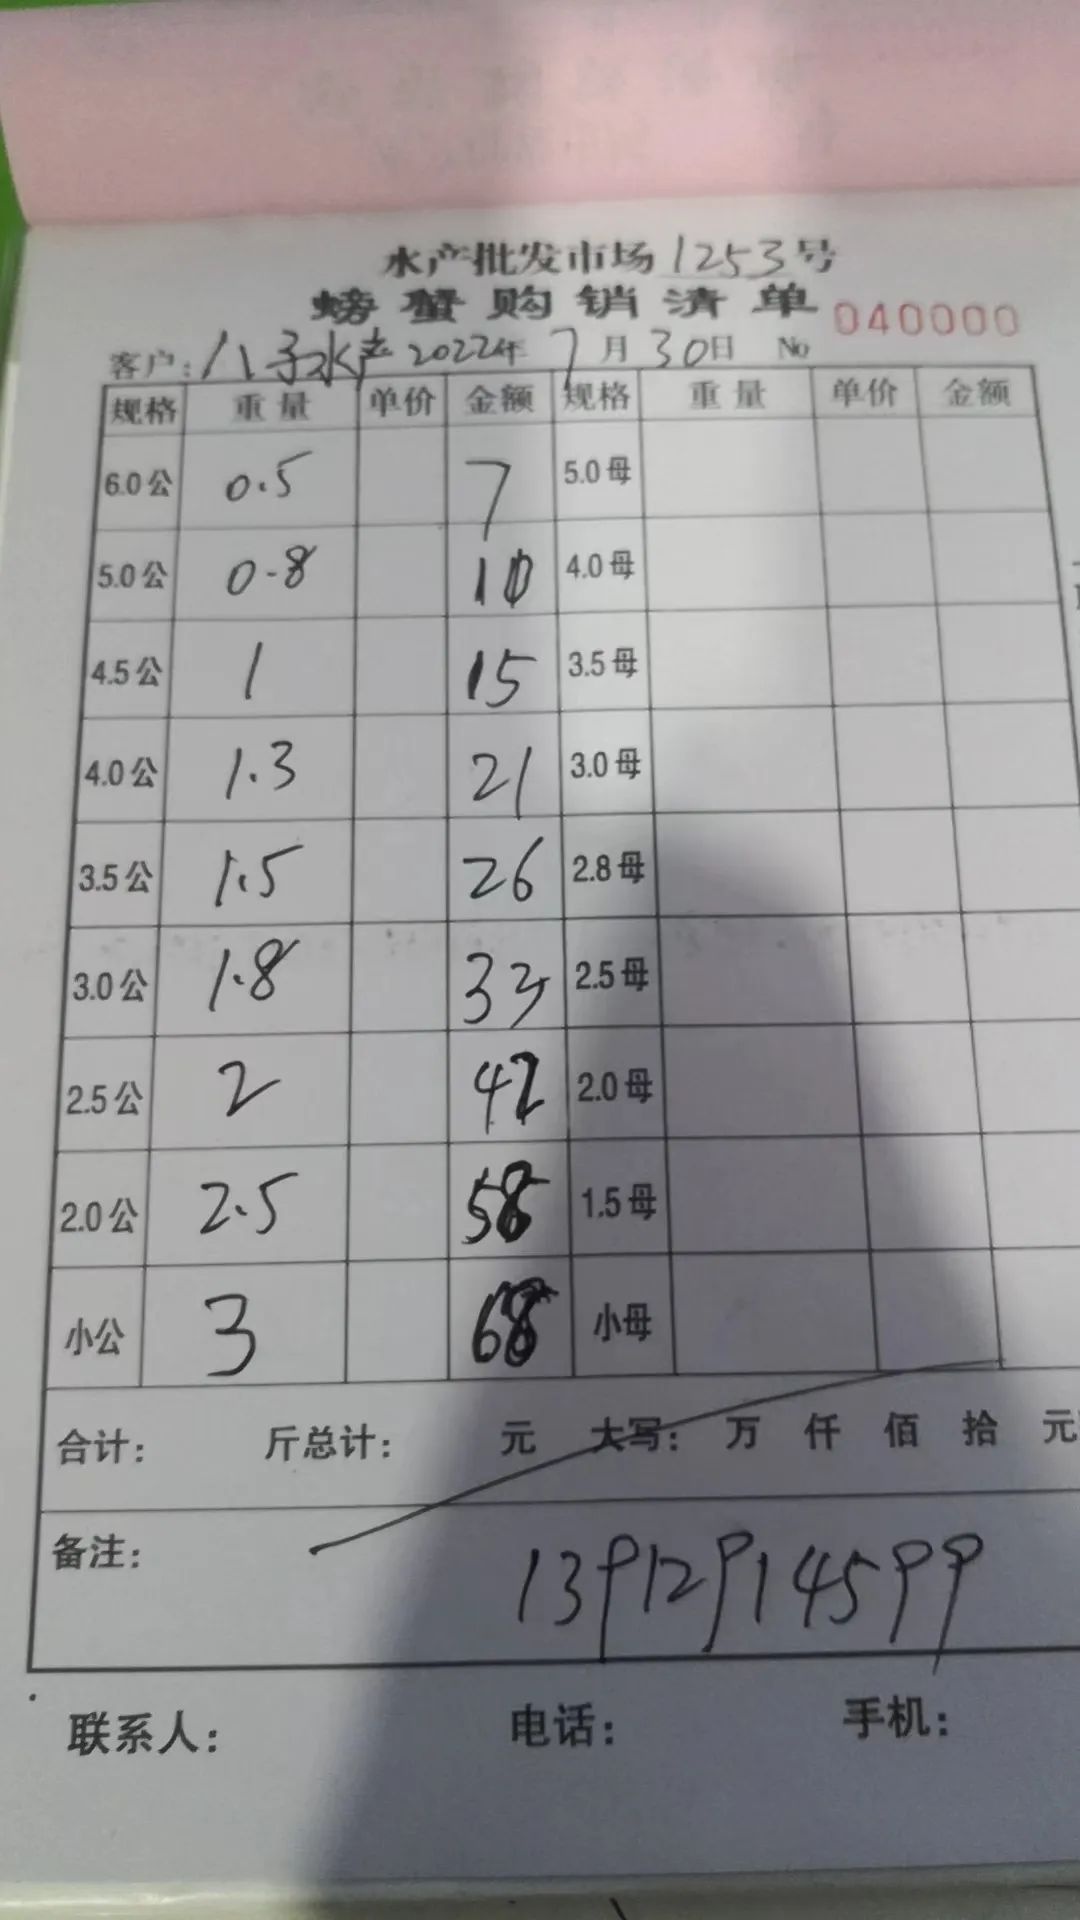 水产批发市场1253号
螃蟹购销清单 040000
客户:八子水产 2022年 7月30日 No
规格 重量 单价 金额 规格 重量 单价 金额
6.0公 0.5 7 5.0母
5.0公 0.8 10 4.0母
4.5公 1 15 3.5母
4.0公 1.3 21 3.0母
3.5公 1.5 26 2.8母
3.0公 1.8 33 2.5母
2.5公 2 42 2.0母
2.0公 2.5 58 1.5母
小公 3 68 小母
合计: 斤总计: 元 大写: 万 仟 佰 拾 元
备注: 13912914599
联系人: 电话: 手机: